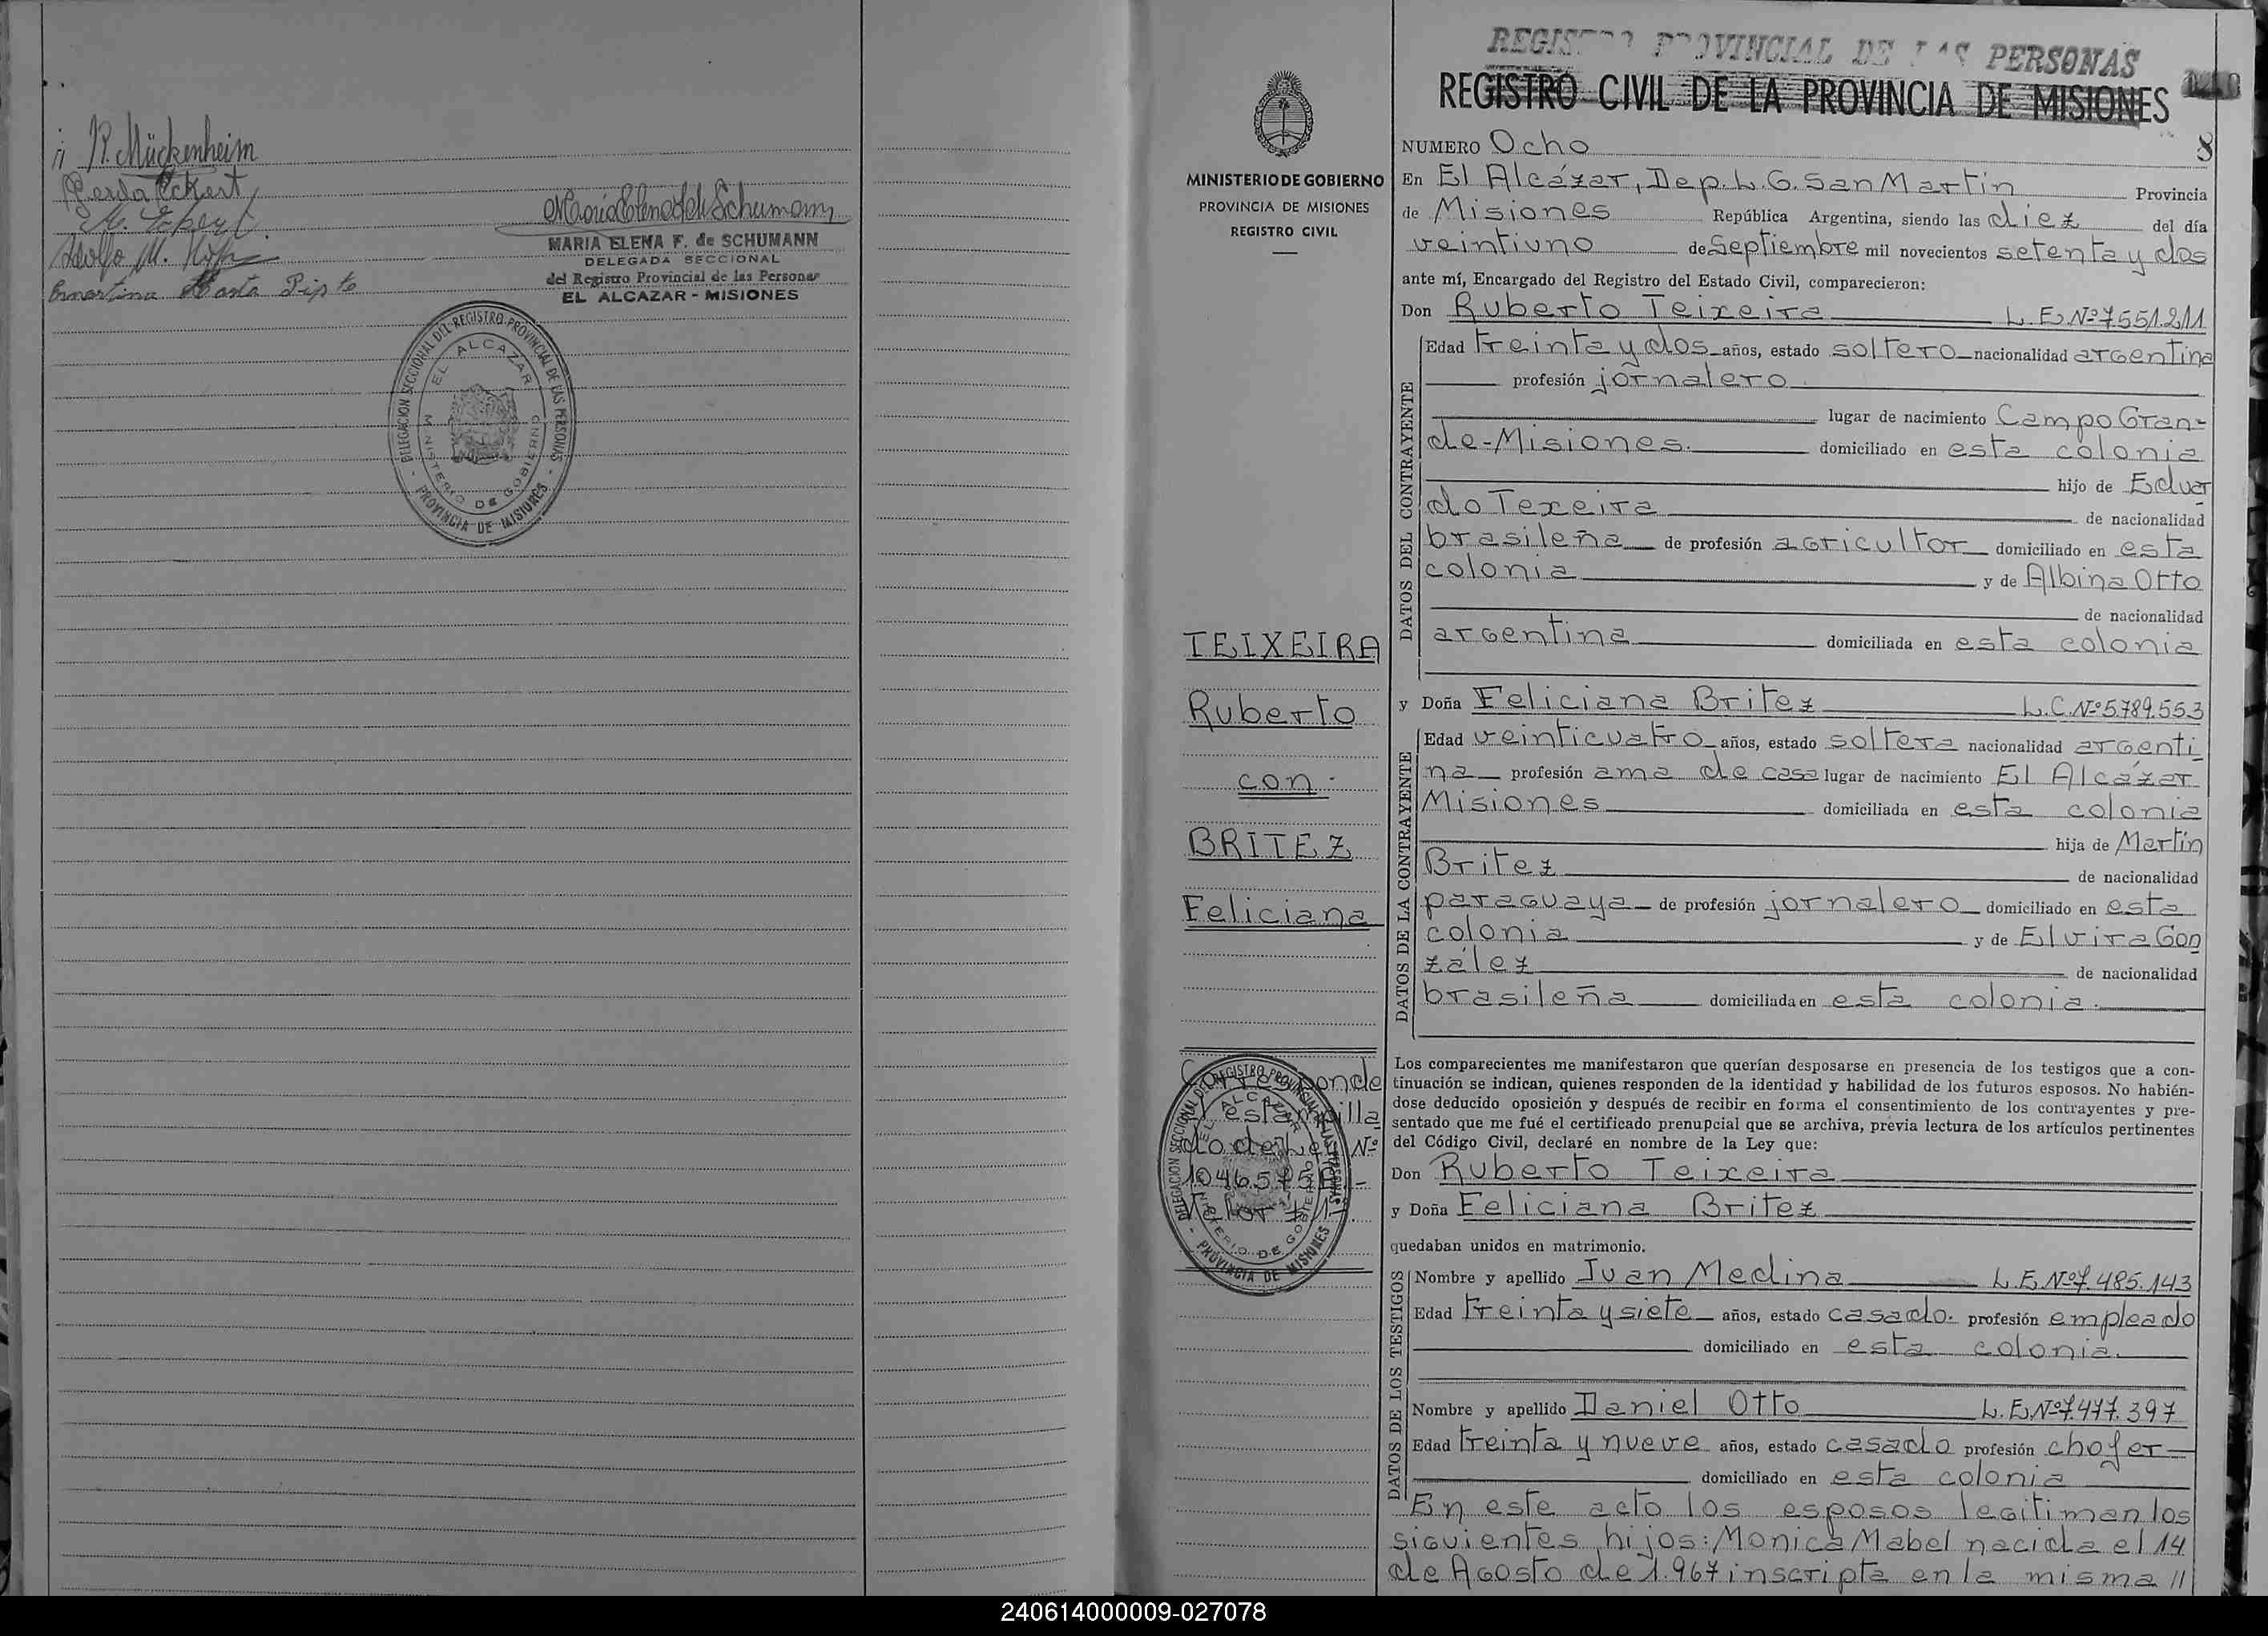 R. Mückenheim
Gerda Eckert
Adolfo M.
MARIA ELENA F. de SCHUMANN
DELEGADA SECCIONAL
del Registro Provincial de las Personas
EL ALCAZAR - MISIONES
DELEGACION SECCIONAL DEL REGISTRO PROVINCIAL DE LAS PERSONAS
EL ALCAZAR
MINISTERIO DE GOBIERNO
- PROVINCIA DE MISIONES -
MINISTERIO DE GOBIERNO
PROVINCIA DE MISIONES
REGISTRO CIVIL
TEIXEIRA
Ruberto
con
BRITEZ
Feliciana
REGISTRO PROVINCIAL DE LAS PERSONAS
REGISTRO CIVIL DE LA PROVINCIA DE MISIONES
8
NUMERO Ocho
En El Alcázar, Dep. L. G. San Martín Provincia
de Misiones República Argentina, siendo las diez del día
veintiuno de Septiembre mil novecientos setenta y dos
ante mí, Encargado del Registro del Estado Civil, comparecieron:
Don Ruberto Teixeira L. E. Nº 7.551.211
DATOS DEL CONTRAYENTE
Edad treinta y dos años, estado soltero nacionalidad argentina
profesión jornalero
lugar de nacimiento Campo Gran-
de-Misiones. domiciliado en esta colonia
hijo de Eduar
do Texeira de nacionalidad
brasileña de profesión agricultor domiciliado en esta
colonia y de Albina Otto
de nacionalidad
argentina domiciliada en esta colonia
y Doña Feliciana Britez L. C. Nº 5.789.553
DATOS DE LA CONTRAYENTE
Edad veinticuatro años, estado soltera nacionalidad argenti
na profesión ama de casa lugar de nacimiento El Alcázar
Misiones domiciliada en esta colonia
hija de Martín
Britez de nacionalidad
paraguaya de profesión jornalero domiciliado en esta
colonia y de Elvira Gon
zález de nacionalidad
brasileña domiciliada en esta colonia.
Los comparecientes me manifestaron que querían desposarse en presencia de los testigos que a con-
tinuación se indican, quienes responden de la identidad y habilidad de los futuros esposos. No habién-
dose deducido oposición y después de recibir en forma el consentimiento de los contrayentes y pre-
sentado que me fué el certificado prenupcial que se archiva, previa lectura de los artículos pertinentes
del Código Civil, declaré en nombre de la Ley que:
Don Ruberto Teixeira
y Doña Feliciana Britez
quedaban unidos en matrimonio.
DATOS DE LOS TESTIGOS
Nombre y apellido Juan Medina L. E. Nº 7.485.143
Edad treinta y siete años, estado casado. profesión empleado
domiciliado en esta colonia.
Nombre y apellido Daniel Otto L. E. Nº 7.477.397
Edad treinta y nueve años, estado casado profesión chofer
domiciliado en esta colonia
En este acto los esposos legitiman los
siguientes hijos: Monica Mabel nacida el 14
de Agosto de 1.967 inscripta en la misma //
240614000009-027078